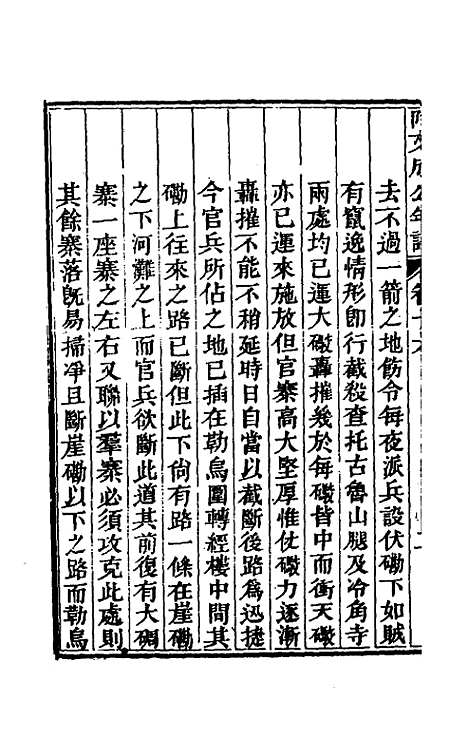 阿文成公年譜 卷十六
去不過一箭之地飭令每夜派兵設伏磡下如賊
有竄逸情形卽行截殺查托古魯山腿及冷角寺
兩處均已運大礮轟摧幾於每礮皆中而衝天礮
亦已運來施放但官寨高大堅厚惟仗礮力逐漸
轟摧不能不稍延時日自當以截斷後路爲迅捷
今官兵所佔之地已插在勒烏圍轉經樓中間其
磡上往來之路已斷但此下尙有路一條在崖磡
之下河灘之上而官兵欲斷此道其前復有大碉
寨一座寨之左右又聯以羣寨必須攻克此處則
其餘寨落旣易掃淨且斷崖磡以下之路而勒烏